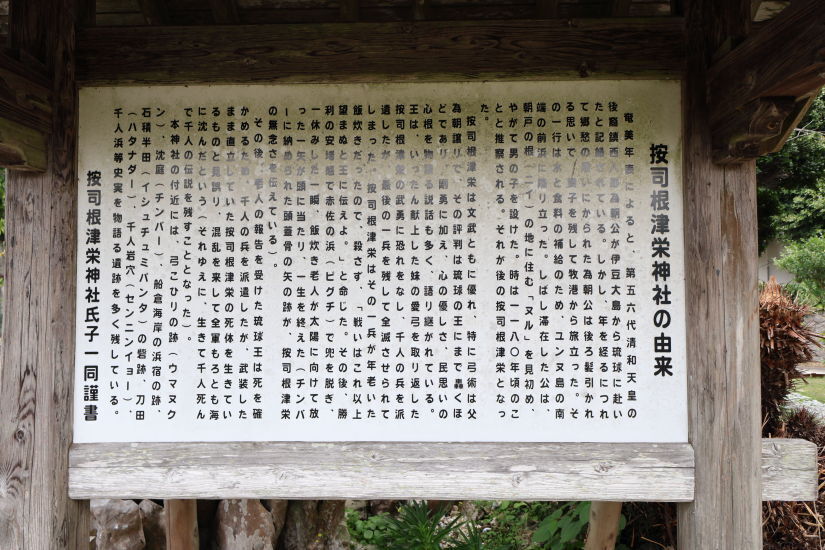 按司根津栄神社の由来
奄美年表によると、第五六代清和天皇の
後裔鎮西八郎為朝公が伊豆大島から琉球に赴い
たと記録されている。しかし、年を経るにつれ
て郷愁の思いにかられた為朝公は後ろ髪引かれ
る思いで、妻子を残して牧港から旅立った。そ
の一行は水と食料の補給のため、ユンヌ島の南
端の前浜に降り立った。しばし滞在した公は、
朝戸の根(ニイ)の地に住む「ヌル」を見初め、
やがて男の子を設けた。時は一一八〇年頃のこ
とと推察される。それが後の按司根津栄となっ
た。
按司根津栄は文武ともに優れ、特に弓術は父
為朝譲りで、その評判は琉球の王にまで轟くほ
どであり、剛勇に加え、心の優しさ、民思いの
心根を物語る説話も多く、語り継がれている。
王は、いったん献上した妹の愛弓を取り返した
按司根津栄の武勇に恐れをなし、千人の兵を派
遣したが、最後の一兵を残して全滅させられて
しまった。按司根津栄はその一兵が年老いた
飯炊きだったので、殺さず、「戦いはこれ以上
望まぬと王に伝えよ。」と命じた。その後、勝
利の安堵感で赤佐の浜(ピグチ)で兜を脱ぎ、
一休みした一瞬、飯炊き老人が太陽に向けて放
った一矢が頭に当たり、一生を終えた(チンバ
ーに納められた頭蓋骨の矢の跡が、按司根津栄
の無念さを伝えている)。
その後、老人の報告を受けた琉球王は死を確
かめるため、千人の兵を派遣したが、武装した
まま直立していた按司根津栄の死体を生きてい
るものと見誤り、混乱を来して全軍もろとも海
に沈んだという(それゆえに、生きて千人死ん
で千人の伝説を残すこととなった)。
本神社の付近には、弓こひりの跡(ウマヌク
ン)、沈庭(チンバー)、船倉海岸の浜宿の跡、
石積半田(イシュチュミバンタ)の砦跡、刀田
(ハタナダー)、千人岩穴(センニンイョー)、
千人浜等史実を物語る遺跡を多く残している。
按司根津栄神社氏子一同謹書